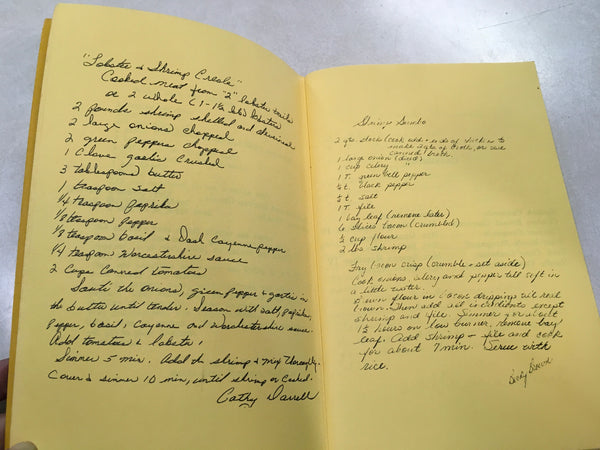 "Lobster & Shrimp Creole"
Cooked meat from "2" lobster tails
or 2 whole (1-1½ lbs) lobsters
2 pounds shrimp shelled and deveined
2 large onions chopped
2 green peppers chopped
1 clove garlic crushed
3 tablespoons butter
1 teaspoon salt
¼ teaspoon paprika
⅛ teaspoon pepper
⅛ teaspoon basil & Dash Cayenne pepper
¼ teaspoon Worcestershire sauce
2 Cups Canned tomatoes
Sauté the onions, green pepper & garlic in
the butter until tender. Season with salt, paprika,
pepper, basil, cayenne and Worchestershire sauce.
Add tomatoes & lobster,
Simmer 5 min. Add the shrimp & mix thoroughly.
Cover & simmer 10 min, until shrimp is cooked.
Cathy Darrell
Shrimp Gumbo
2 qts stock (cook and ends of to
make 2 qts of broth, or use
canned broth.
1 large onion (diced)
1 cup celery "
1 T. green bell pepper
½ t. black pepper
½ t. salt
1 T. file
1 bay leaf (remove later)
6 slices bacon (crumbled)
½ cup flour
2 lbs shrimp
Fry bacon crisp (crumble & set aside)
Cook onions, celery and pepper till soft in
a little water.
Brown flour in bacon drippings till real
brown. Then add all ingredients except
shrimp and file. Simmer for about
1½ hours on low burner, remove bay
leaf. Add shrimp & file and cook
for about 7 min. Serve with
rice.